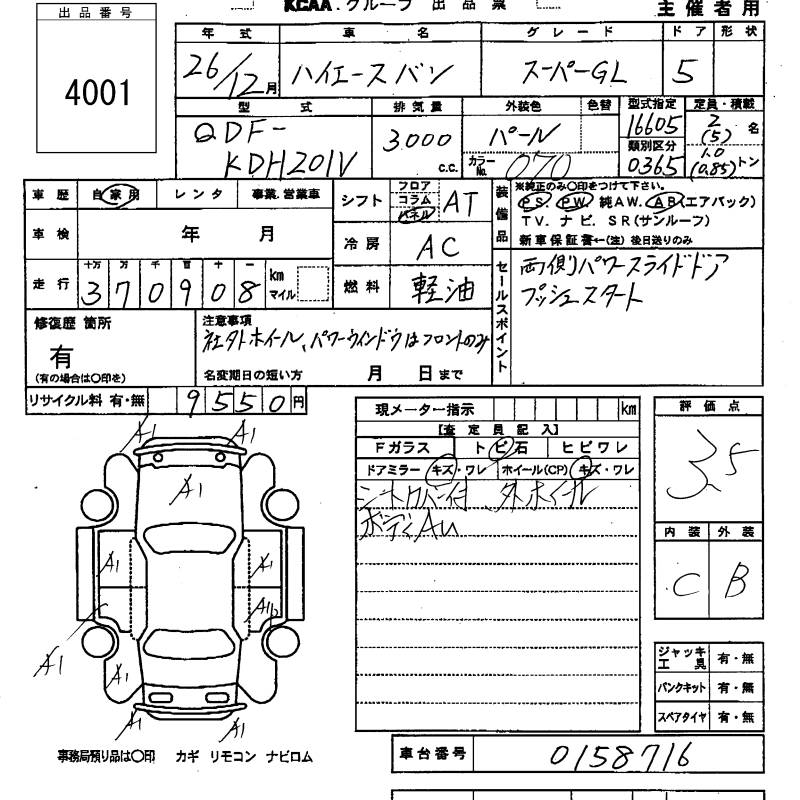 KCAA.グループ 出品票
主催者用
出品番号
4001
年式 車名 グレード ドア 形状
26/12月 ハイエースバン スーパーGL 5
型式 排気量 外装色 色替 型式指定 定員・積載
QDF-KDH201V 3000 c.c. パール カラーNo. 070 16605 2(5)名
類別区分 0365 1.0(0.85)トン
車歴 自家用 レンタ 事業.営業車
シフト フロア コラム パネル AT
装備品 ※純正のみ○印をつけて下さい。
PS PW 純AW. AB(エアバック)
TV. ナビ. SR(サンルーフ)
新車保証書←(注)後日送りのみ
車検 年 月
冷房 AC
走行 十万 万 千 百 十 一
370908 km マイル
燃料 軽油
セールスポイント 両側パワースライドドア
プッシュスタート
修復歴 箇所
有
(有の場合は○印を)
注意事項
社外ホイール、パワーウィンドウはフロントのみ
名変期日の短い方 月 日まで
リサイクル料 有・無 9550円
現メーター指示 km
【査定員記入】
Fガラス トビ石 ヒビワレ
ドアミラー キズ・ワレ ホイール(CP) キズ・ワレ
シートカバー付 外ホイール
ボディAU
評価点
3.5
内装 外装
C B
A1 A1
A1
A1 A1
A1
A1
A1
A1 A1
ジャッキ工具 有・無
パンクキット 有・無
スペアタイヤ 有・無
事務局預り品は○印 カギ リモコン ナビロム
車台番号 0158716